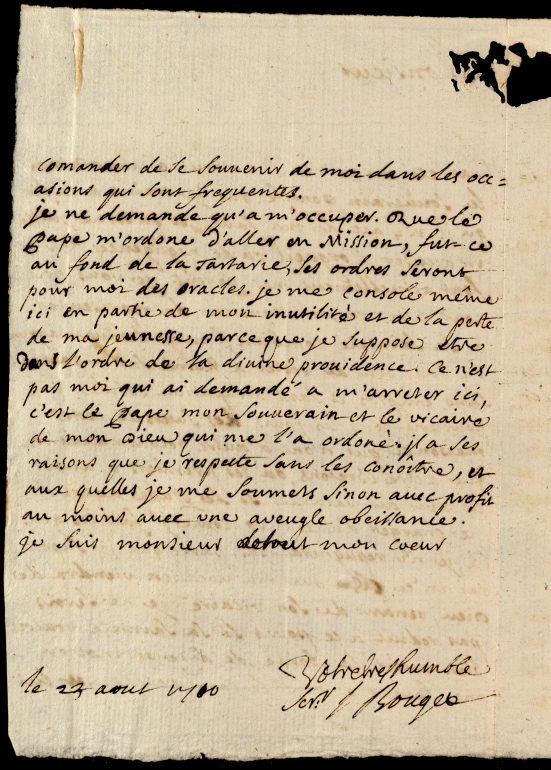 comander de se souvenir de moi dans les occ=
asions qui sont frequentes.
je ne demande qu'a m'occuper. Que le
Pape m'ordone d'aller en Mission, fut-ce
au fond de la Tartarie, ses ordres seront
pour moi des oracles. je me console même
ici en partie de mon inutilité et de la perte
de ma jeunesse, parceque je suppose etre
dans l'ordre de la divine providence. Ce n'est
pas moi qui ai demandé a m'arreter ici,
c'est le Pape mon souverain et le vicaire
de mon Dieu qui me l'a ordoné. jl a ses
raisons que je respecte sans les conoître, et
aux quelles je me soumets sinon avec profit
au moins avec une aveugle obeissance.
je suis monsieur de tout mon coeur
Votre tres humble
le 23 aout 1710
Serv.r J Bouget